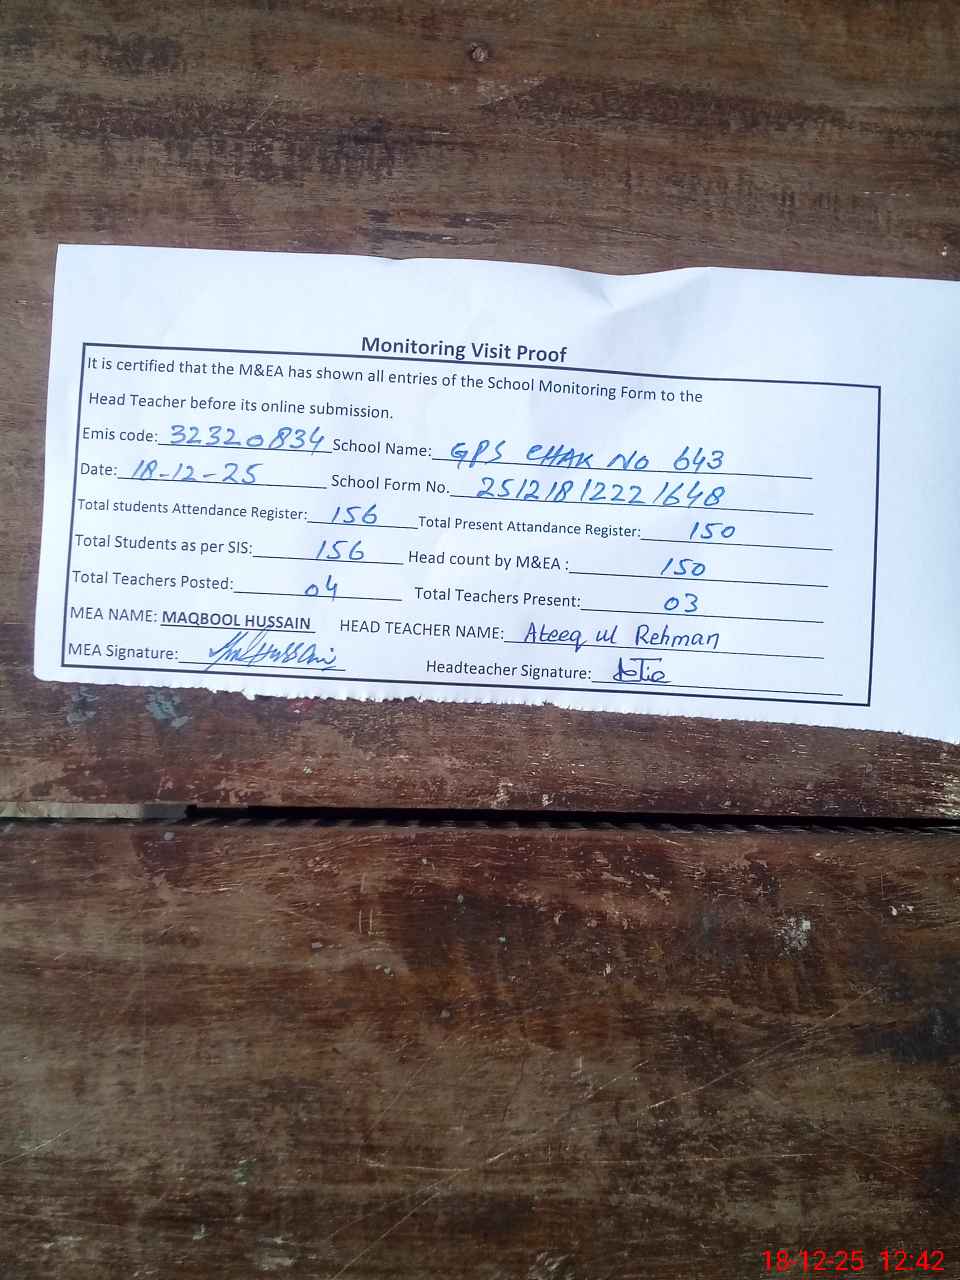 Monitoring Visit Proof
It is certified that the M&EA has shown all entries of the School Monitoring Form to the
Head Teacher before its online submission.
Emis code: 32320834 School Name: GPS CHAK NO 643
Date: 18-12-25 School Form No. 2512181222 1648
Total students Attendance Register: 156 Total Present Attandance Register: 150
Total Students as per SIS: 156 Head count by M&EA : 150
Total Teachers Posted: 04 Total Teachers Present: 03
MEA NAME: MAQBOOL HUSSAIN HEAD TEACHER NAME: Ateeq ul Rehman
MEA Signature: Headteacher Signature:
18-12-25 12:42